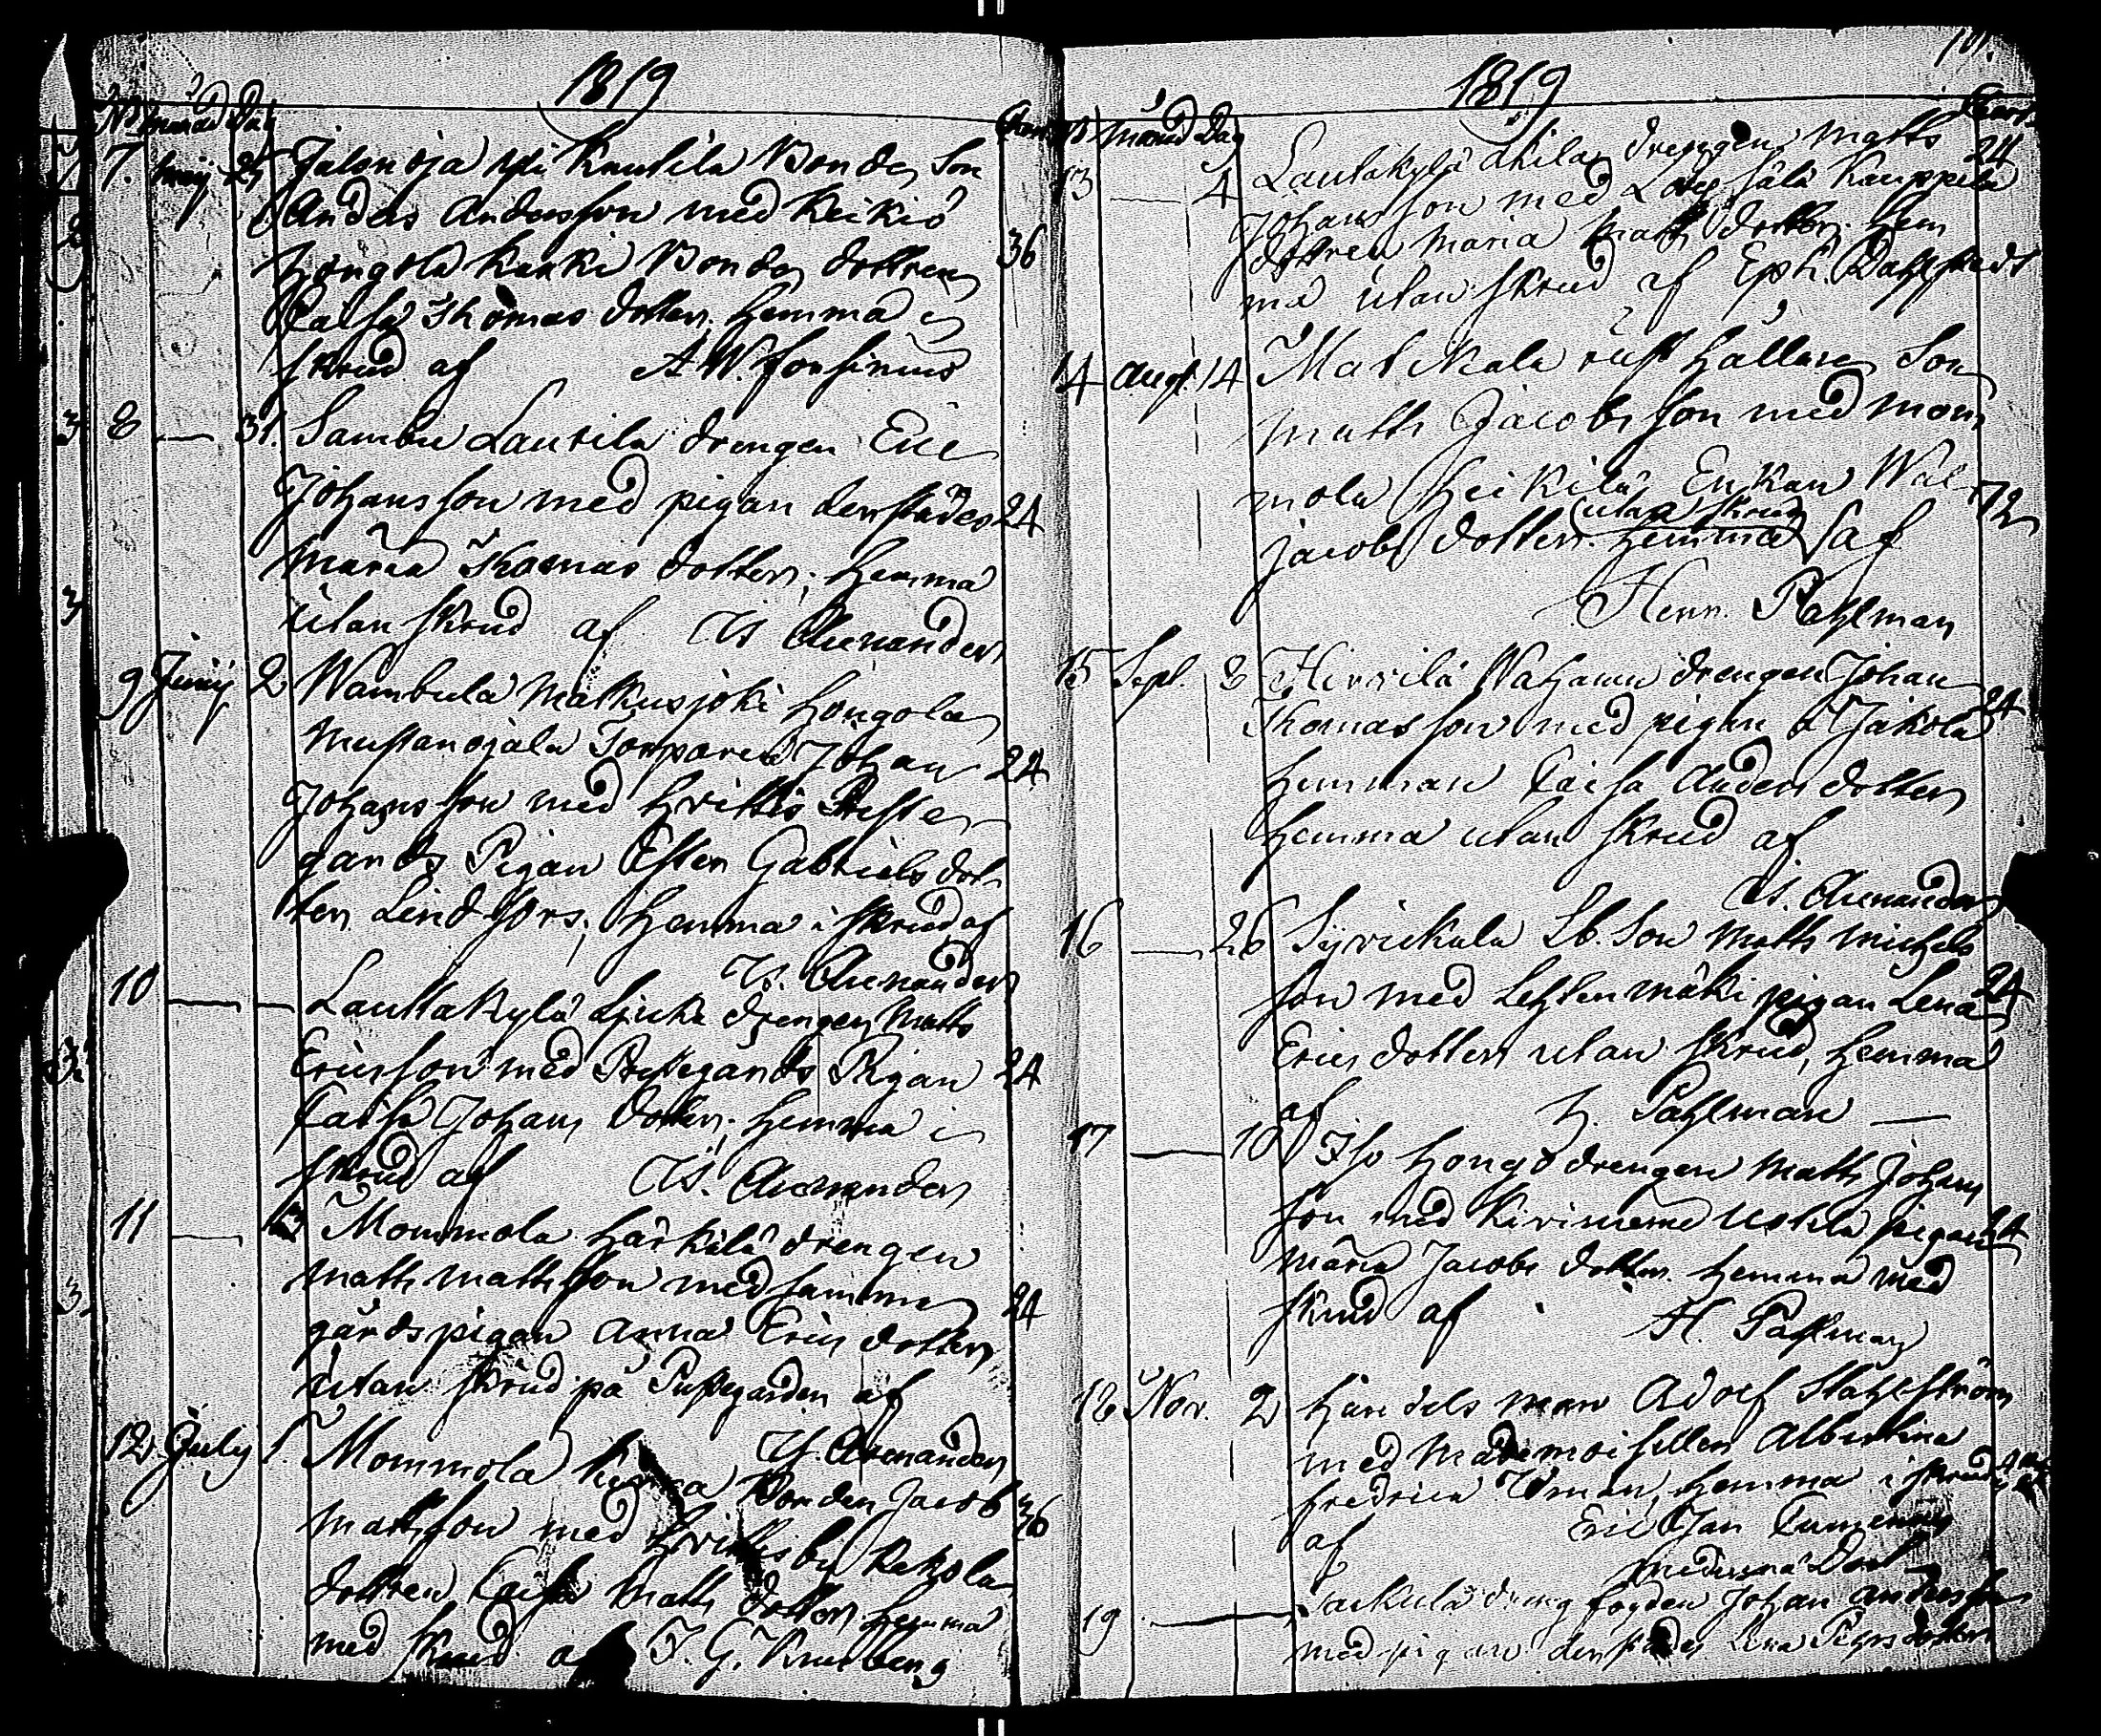 1819
No månad Dag
7. Maij 25 Jalonoja Yli Knutila Bonde Son
Anders Andersson med Keikiö
Hongola Kauki Bonde dottren 36
Caisa Thomas dotter. Hemma i
skrud af A W. Forsinius
8 — 31. Sambu Laurila drengen Eric
Johansson med pigan derstädes 24
Maria Thomas dotter; Hemma
utan skrud af Is. Chenander
9 Junij 2 Wambula Matkusjoki Hongola
Mustanojala Torparen Johan 24
Johansson med Hvittis Preste
gårds Pigan Ester Gabriels dot
ter Lindfors; Hemma i skrud af
Is. Chenander
10 — — Lauttakylä Äjuka drengen Matts
Ericsson med Prestegårds Pigan 24
Caisa Johans dotter; Hemma i
skrud af Is. Chenander
11 — 13 Mommola Härkälä drengen
Matts Mattsson med samma 24
gårds pigan Anna Erics dotter
utan skrud på Prestegården af
Is. Chenander
12. July 1. Mommola Bonden Jacob 36
Mattsson med Hvittis by Rekola
dottren Caisa Matts dotter Hemma
med skrud af I. G. Kruberg
1819
No månad Dag
13 — 4 Lautakylä drengen Matts 24
Johansson med Loysälä Kauppila
dottren Maria Matts dotter. Hem
ma utan skrud af Eph. Dahlstedt
14 Augt. 14 Matikala rusthållare Son
Matts Jacobsson med Mom
mola Heikilä Enkan Wal. 72
Jacobs dotter. (utan skrud) Hemma af
Henr. Pahlman
15 Sept 8 Hirvilä Wahanu drengen Johan 24
Thomasson med pigan å Jakola
Hemman Caisa Anders dotter
Hemma utan skrud af
Is. Chenander
16 — 26 Syvickala Lb. Son Matts Michels
son med Lehtenmäki pigan Lena 24
Erics dotter utan skrud, Hemma
af H. Pahlman —
17 — 10 Iso Hongo drengen Matts Johans
son med Kiviniemi Uotila pigan 24
Maria Jacobs dotter. Hemma med
skrud af H. Pahlman
18 Nov. 2 Handels man Adolf Stahlström
med Mademoisellen Albertina
Fredrica Öman, Hemma i skrud
af Eric Jan
19 — Sarkula dreng fogden Johan Andersson
med pigan derstädes Lena Pehrs dotter